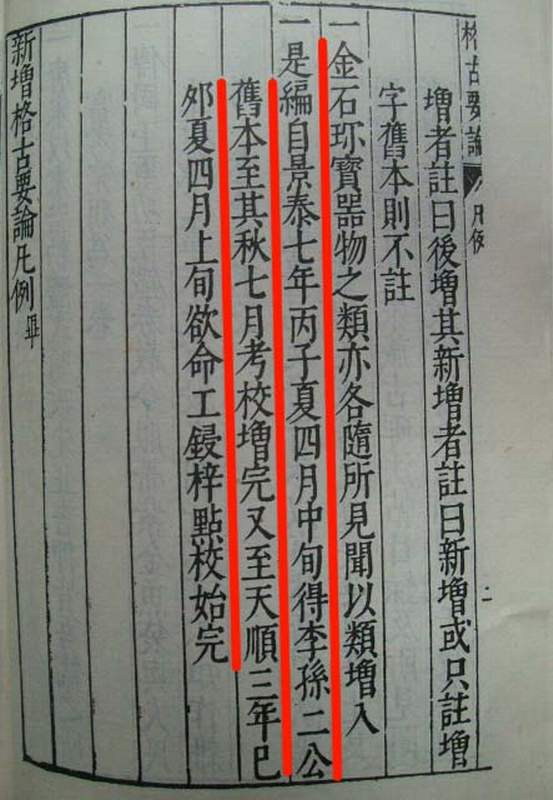 格古要論 凡例
增者註曰後增其新增者註曰新增或只註增
字舊本則不註
一金石珎寶器物之類亦各隨所見聞以類增入
一是編自景泰七年丙子夏四月中旬得李孫二公
舊本至其秋七月考校增完又至天順三年己
夘夏四月上旬欲命工鋟梓點校始完
新增格古要論凡例畢